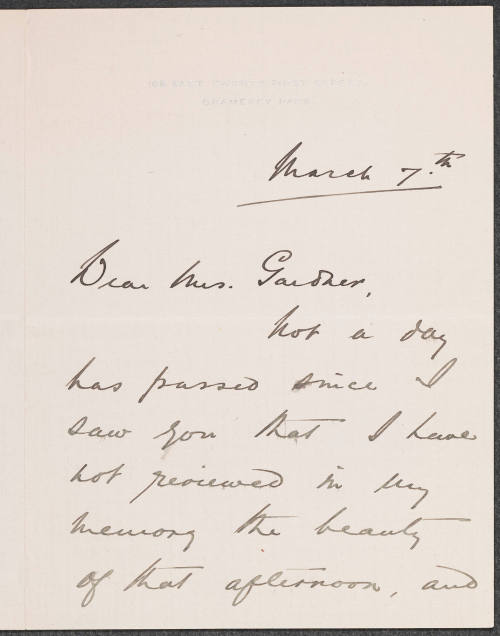 108 EAST TWENTY-FIRST STREET,
GRAMERCY PARK.
March 7.th
Dear Mrs. Gardner,
Not a day
has passed since I
saw you that I have
not reviewed in my
memory the beauty
of that afternoon, and